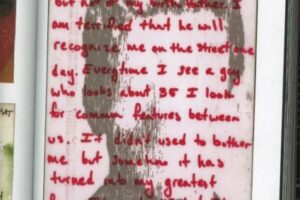 but not of my birth father. I
am terrified that he will
recognize me on the street one
day. Everytime I see a guy
who looks about 35 I look
for common features between
us. It didn't used to bother
me but somehow it has
turned into my greatest